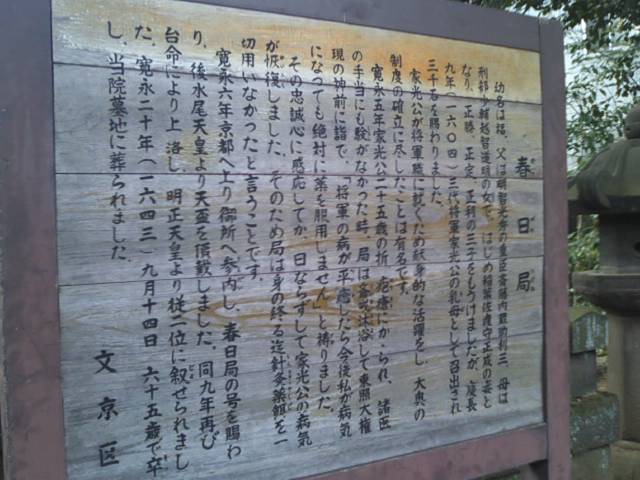 春日局
幼名は福、父は明智光秀の重臣斎藤内蔵助利三、母は
刑部少輔越智通明の女で、はじめ稲葉佐渡守正成の妻と
なり、正勝、正定、正利の三子をもうけましたが、慶長
九年(一六〇四)三代将軍家光公の乳母として召出され
三千石を賜わりました。
家光公が将軍職に就くため献身的な活躍をし、大奥の
制度の確立に尽したことは有名です。
寛永五年家光公二十五歳の折、疱瘡にかゝられ、諸医
の手当にも験がなかった時、局は斎戒沐浴して東照大権
現の神前に詣で、「将軍の病が平癒したら今後私が病気
になっても絶対に薬を服用しません」と祷りました。
その忠誠心に感応してか、日ならずして家光公の病気
が恢復しました。そのため局は身の終る迄針灸薬餌を一
切用いなかったと言うことです。
寛永六年京都へ上り御所へ参内し、春日局の号を賜わ
り、後水尾天皇より天盃を頂戴しました。同九年再び
台命により上洛し、明正天皇より従二位に叙せられまし
た。寛永二十年(一六四三)九月十四日 六十五歳で卒
し、当院墓地に葬られました。
文京区